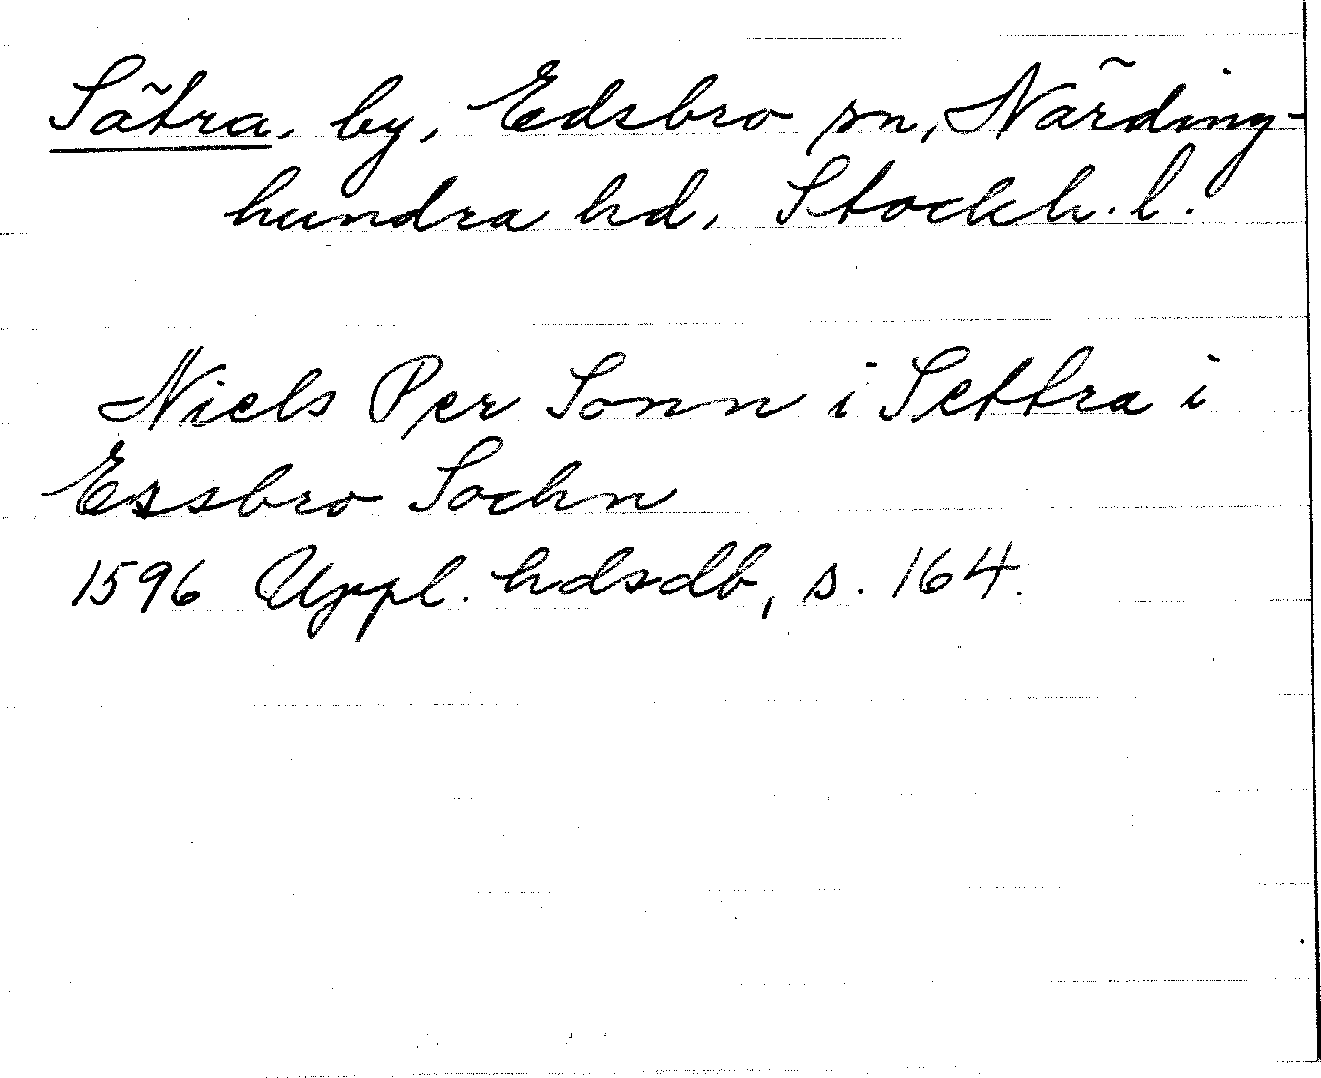 Sätra, by, Edsbro sn, Närding-
hundra hd, Stockh. l.
Niels Per Sonn i Settra i
Essbro Sochn
1596 Uppl. hdsdb, s. 164.